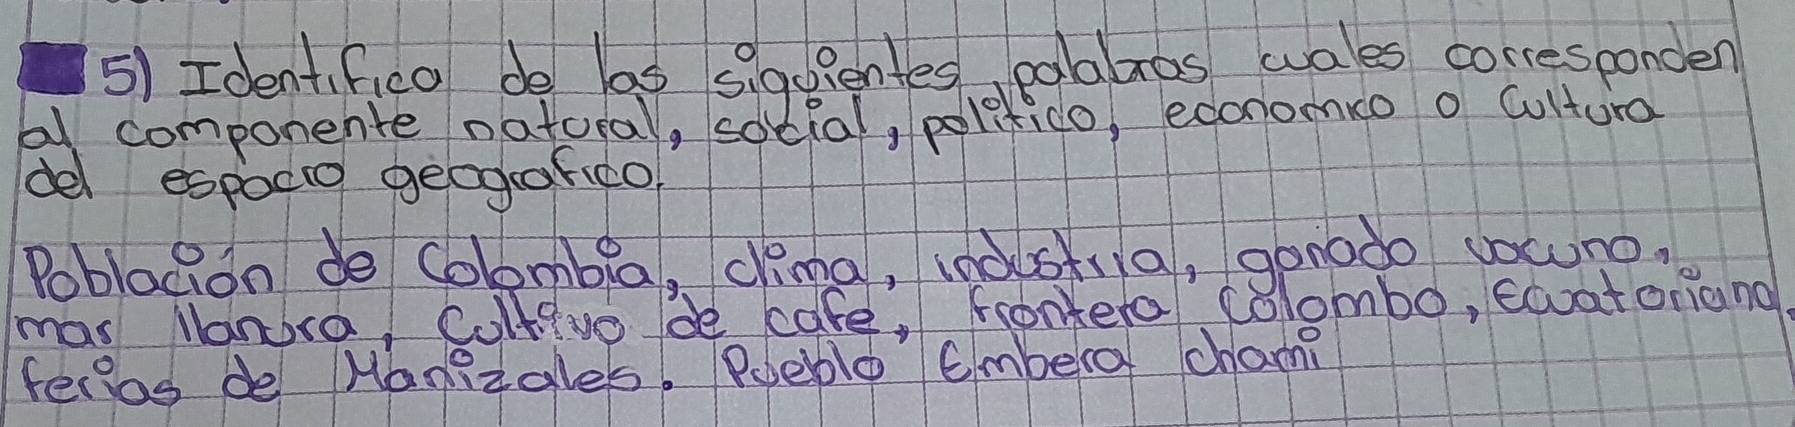 5) Identifica de las siguientes palabras cuales corresponden
al componente natural, social, politico, economico o Cultura
del espacio geografico.
Población de Colombia, clima, industria, ganado vacuno,
mar llanura, Cultivo de cafe, Frontera Colombo, Ecuatoriana.
ferias de Manizales. Pueblo Embera chami